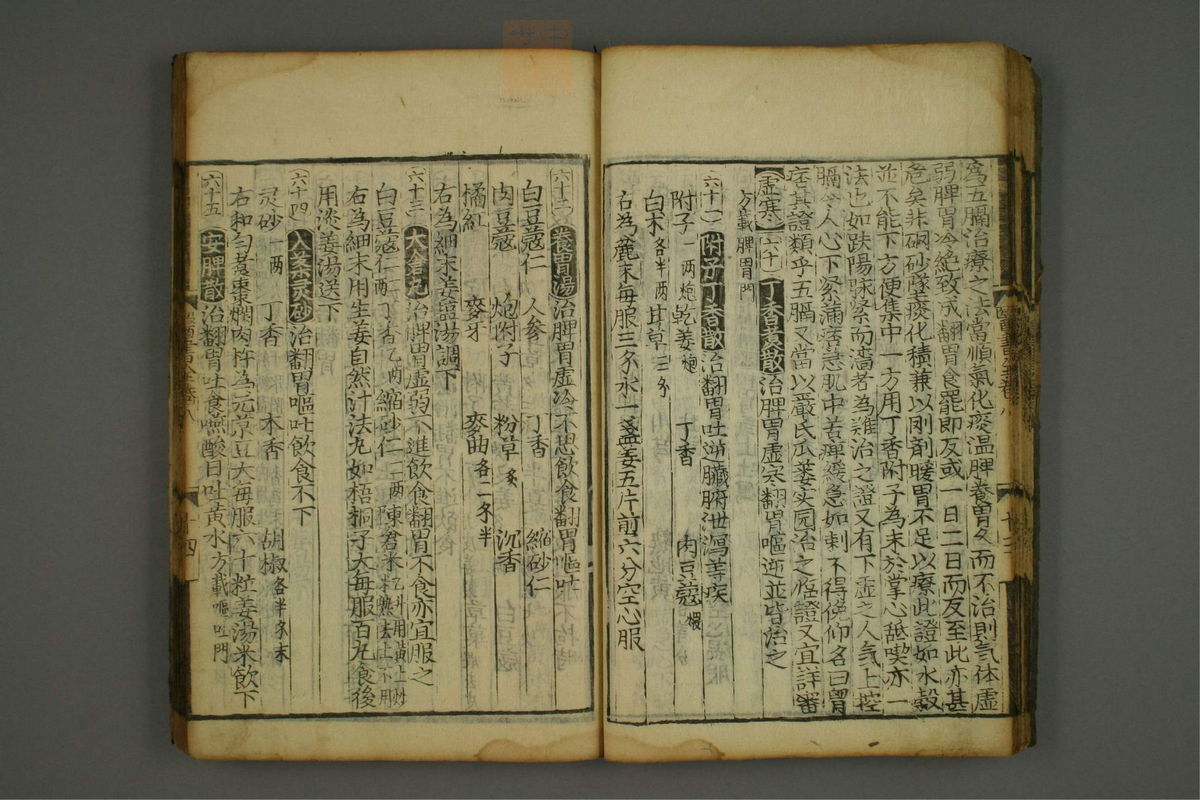 為五膈治療之法當順氣化痰温脾養胃久而不治則气体虚
弱脾胃冷絶致成翻胃食罷即反或一日二日而反至此亦甚
危矣非硇砂墜痰化積兼以剛剤暖胃不足以療此證如水穀
並不能下方便集中一方用丁香附子為末於掌心舐喫亦一
法也如趺陽脉緊而濇者為難治之證又有下虚之人气上控
膈令人心下堅滿痞急肌中苦痺緩急如刺不得俛仰名曰胃
痞其證類乎五膈又當以嚴氏瓜蔞实圓治之怪證又宜詳審
虚寒 六十 丁香煮散 治脾胃虚寒翻胃嘔逆並皆治之
方載脾胃門
六十一 附子丁香散 治翻胃吐逆臟腑泄瀉等疾
附子一两炮 乾姜炮 丁香 肉豆蔻煨
白术各半两 甘草三分
右為麄末每服三分水一盞姜五片煎六分空心服
六十二 養胃湯 治脾胃虚冷不思飲食翻胃嘔吐
白豆蔻仁 人参 丁香 縮砂仁
肉豆蔻 炮附子 粉草炙 沉香
橘紅 麥牙 麥曲各二分半
右為細末姜塩湯調下
六十三 大倉丸 治脾胃虚弱不進飲食翻胃不食亦宜服之
白豆蔻仁二两 丁香乙两 縮砂仁二两 陳倉米乙升用黄土炒米熟去土不用
右為細末用生姜自然汁法丸如梧桐子大每服百丸食後
用淡姜湯送下
六十四 入藥灵砂 治翻胃嘔吐飲食不下
灵砂一两 丁香 木香 胡椒各半分末
右和匀煮棗爛肉杵為元菉豆大每服六十粒姜湯米飲下
六十五 安脾散 治翻胃吐食嚥酸日吐黄水方載嘔吐門